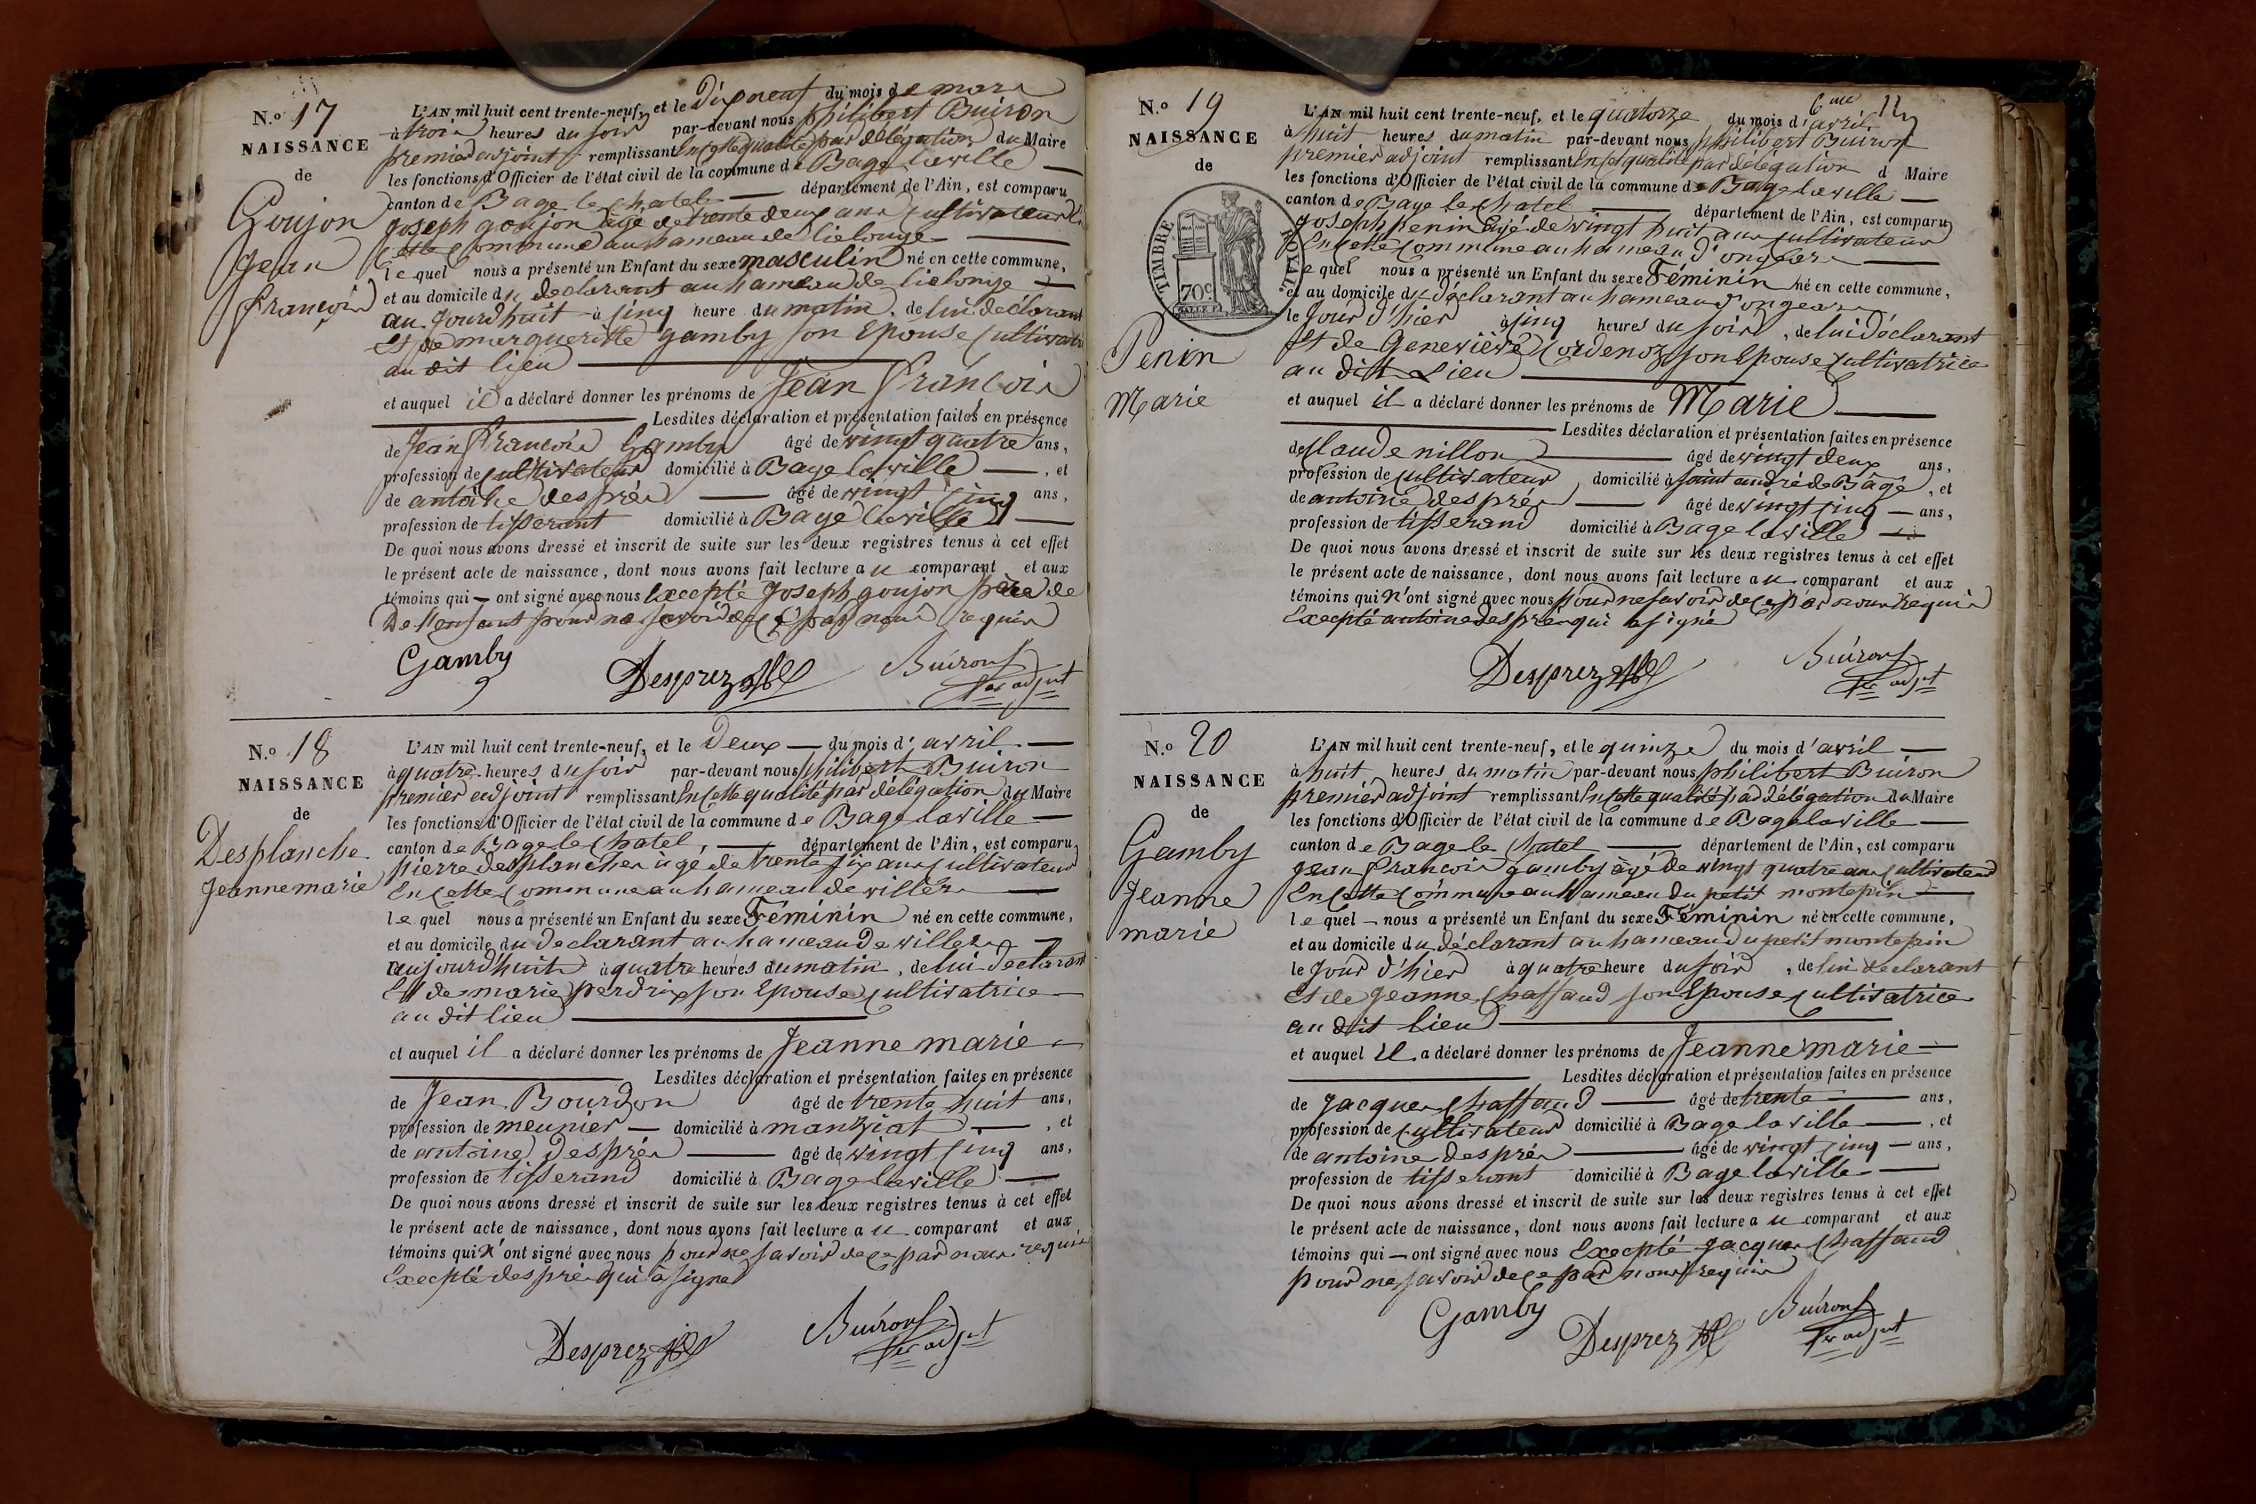 N.o 17
NAISSANCE
de
Goujon
Jean
françois
L'AN mil huit cent trente-neuf, et le Dixneuf du mois de mars
à trois heures du soir par-devant nous philibert Buiron
premier adjoint remplissant en cette qualité par délégation du Maire
les fonctions d'Officier de l'état civil de la commune de Bage laville
canton de Bage le Chatel département de l'Ain, est comparu
joseph goujon agé de trente deux ans Cultivateur
Cette Commune au hameau de
lequel nous a présenté un Enfant du sexe masculin né en cette commune,
et au domicile du declarant au hameau de
aujourd'huit à Cinq heure du matin, de lui déclarant
et de margueritte gamby son Epouse Cultivatrice
au dit lieu
et auquel il a déclaré donner les prénoms de Jean François
Lesdites déclaration et présentation faites en présence
de Jean François Gamby âgé de vingt quatre ans,
profession de Cultivateur domicilié à Bage laville, et
de antoine després âgé de vingt Cinq ans,
profession de tisserant domicilié à Bage laville
De quoi nous avons dressé et inscrit de suite sur les deux registres tenus à cet effet
le présent acte de naissance, dont nous avons fait lecture au comparant et aux
témoins qui ont signé avec nous Excepté joseph goujon père de
De l'enfant pour ne savoir de ce par nous requis
Gamby Desprez Buiron
1er adjt
N.o 18
NAISSANCE
de
Desplanche
Jeannemarie
L'AN mil huit cent trente-neuf, et le Deux du mois d'avril
à quatre heures du soir par-devant nous philibert Buiron
premier adjoint remplissant en cette qualité par délégation du Maire
les fonctions d'Officier de l'état civil de la commune de Bage laville
canton de Bage le Chatel, département de l'Ain, est comparu
pierre desplanches agé de trente six ans Cultivateur
En cette Commune au hameau de villers
lequel nous a présenté un Enfant du sexe Féminin né en cette commune,
et au domicile du declarant au hameau de villers
aujourd'huit à quatre heures du matin, de lui declarant
Et de marie perdrix son Epouse Cultivatrice
au dit lieu
et auquel il a déclaré donner les prénoms de Jeanne marie
Lesdites déclaration et présentation faites en présence
de Jean Bourdon âgé de trente huit ans,
profession de meunier domicilié à manziat, et
de antoine després âgé de vingt Cinq ans,
profession de tisserand domicilié à Bage laville
De quoi nous avons dressé et inscrit de suite sur les deux registres tenus à cet effet
le présent acte de naissance, dont nous avons fait lecture au comparant et aux
témoins qui n'ont signé avec nous pour ne savoir de ce par nous requis
Excepté després qui à signé
Desprez Buiron
1er adjt
6me
N.o 19
NAISSANCE
de
TIMBRE ROYAL.
70c
Penin
Marie
L'AN mil huit cent trente-neuf, et le quatorze du mois d'avril
à huit heures du matin par-devant nous philibert Buiron
premier adjoint remplissant en cet qualité par délégation d Maire
les fonctions d'Officier de l'état civil de la commune de Bage laville
canton de Bage le Chatel département de l'Ain, est comparu
joseph penin agé de vingt huit ans Cultivateur
En cette Commune au hameau d'ongears
lequel nous a présenté un Enfant du sexe Féminin né en cette commune,
et au domicile du déclarant au hameau d'ongears
le jour d'hier à Cinq heures du soir, de lui déclarant
Et de Geneviève Cordenoz son Epouse Cultivatrice
au dit Lieu
et auquel il a déclaré donner les prénoms de Marie
Lesdites déclaration et présentation faites en présence
de Claude nillon âgé de vingt deux ans,
profession de Cultivateur domicilié à saint andré de Bagé, et
de antoine després âgé de vingt Cinq ans,
profession de tisserand domicilié à Bage laville
De quoi nous avons dressé et inscrit de suite sur les deux registres tenus à cet effet
le présent acte de naissance, dont nous avons fait lecture au comparant et aux
témoins qui n'ont signé avec nous pour ne savoir de ce par nous requis
Excepté antoine després qui a signé
Desprez Buiron
1er adjt
N.o 20
NAISSANCE
de
Gamby
Jeanne
marie
L'AN mil huit cent trente-neuf, et le quinze du mois d'avril
à huit heures du matin par-devant nous philibert Buiron
premier adjoint remplissant en cette qualité par délégation du Maire
les fonctions d'Officier de l'état civil de la commune de Bage laville
canton de Bage le Chatel département de l'Ain, est comparu
jean François gamby agé de vingt quatre ans Cultivateur
En cette Commune au hameau du petit montepin
lequel nous a présenté un Enfant du sexe Féminin né en cette commune,
et au domicile du déclarant au hameau du petit montepin
le jour d'hier à quatre heure du soir, de lui declarant
et de jeanne Chaffaud son Epouse Cultivatrice
au dit lieu
et auquel il a déclaré donner les prénoms de Jeanne marie
Lesdites déclaration et présentation faites en présence
de jacques Chaffaud âgé de trente ans,
profession de Cultivateur domicilié à Bage laville, et
de antoine després âgé de vingt Cinq ans,
profession de tisserant domicilié à Bage laville
De quoi nous avons dressé et inscrit de suite sur les deux registres tenus à cet effet
le présent acte de naissance, dont nous avons fait lecture au comparant et aux
témoins qui ont signé avec nous Excepté jacques Chaffaud
pour ne savoir de ce par nous requis
Gamby Desprez Buiron
1er adjt